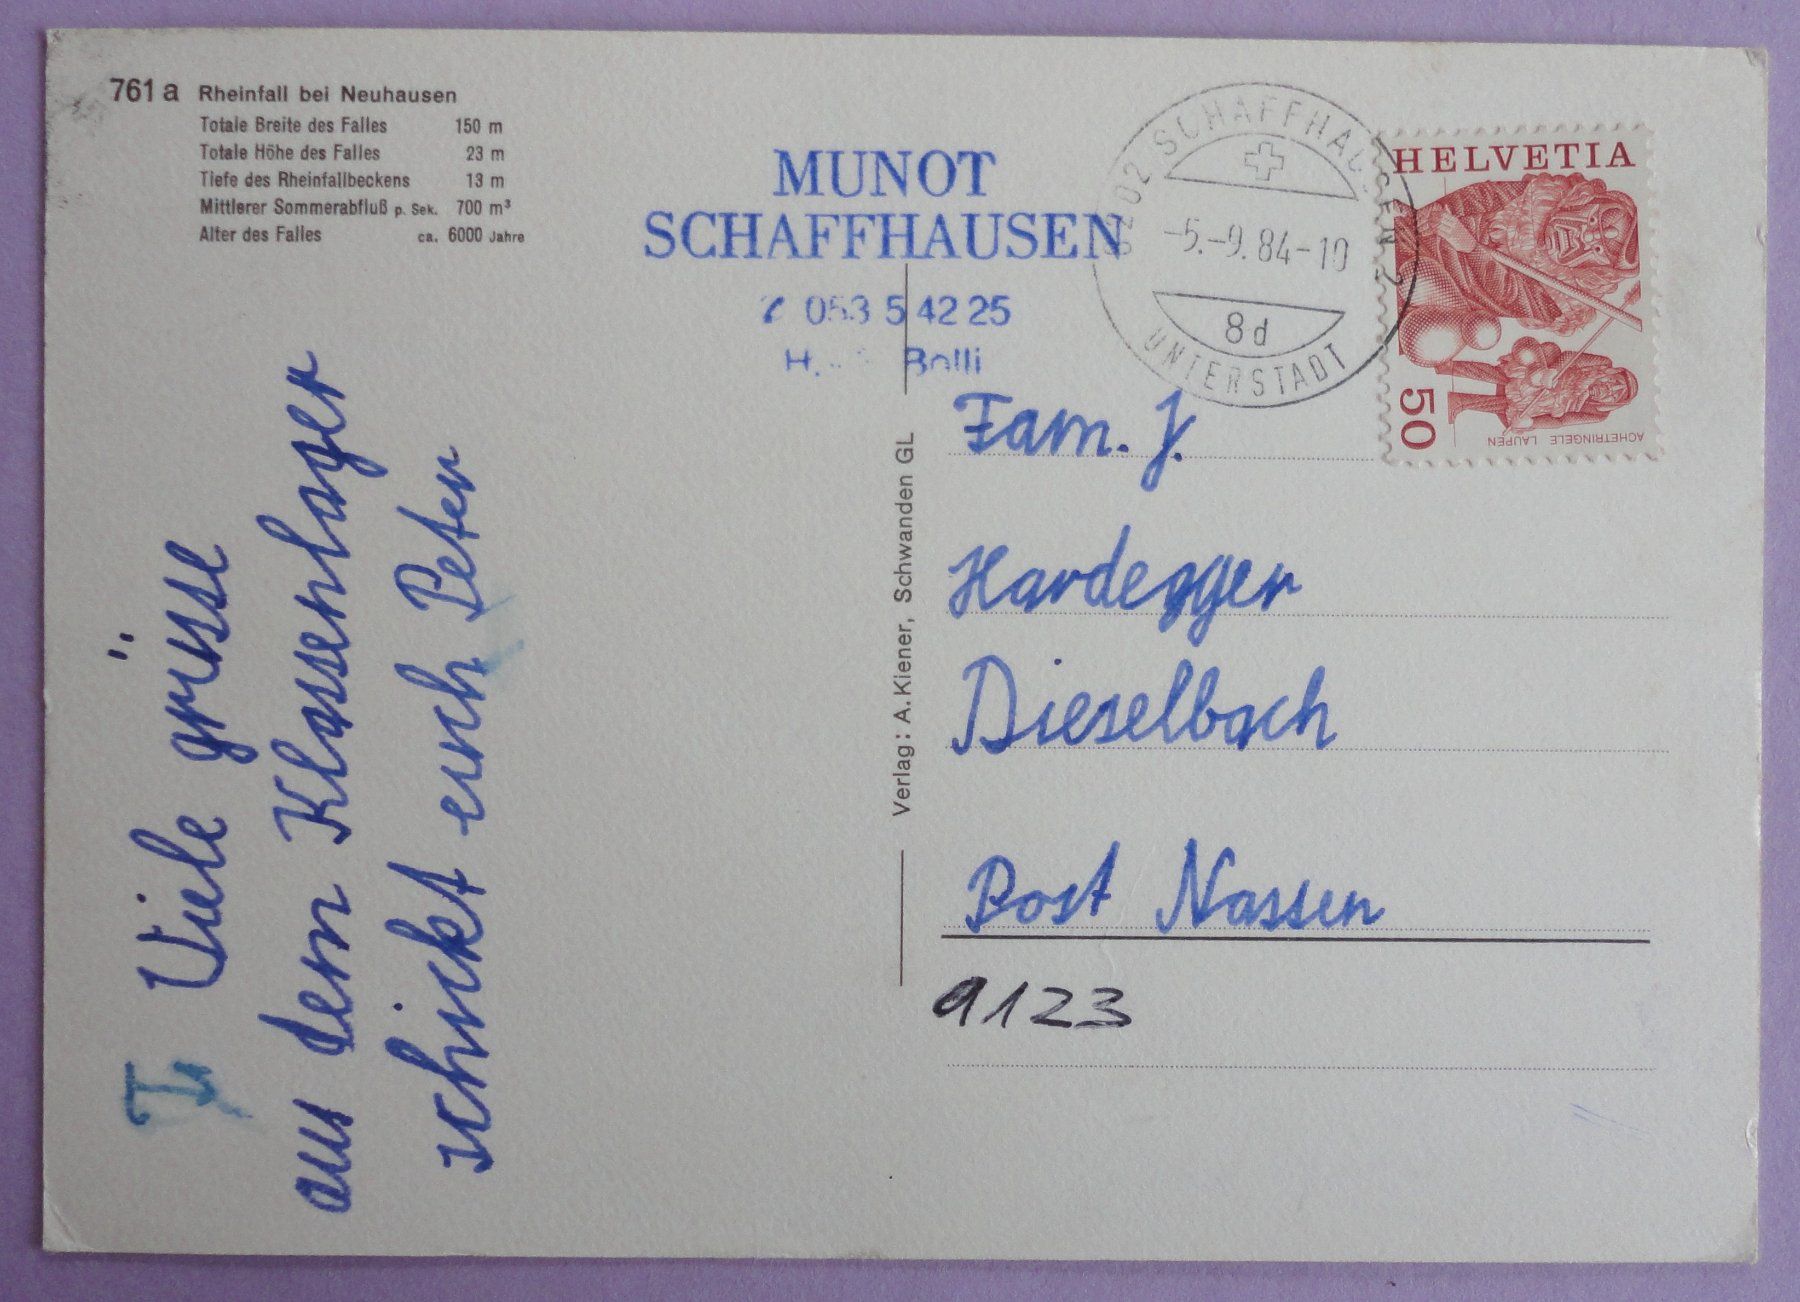 761 a Rheinfall bei Neuhausen
Totale Breite des Falles 150 m
Totale Höhe des Falles 23 m
Tiefe des Rheinfallbeckens 13 m
Mittlerer Sommerabfluß p. Sek. 700 m³
Alter des Falles ca. 6000 Jahre
MUNOT
SCHAFFHAUSEN
053 5 42 25
H. Bolli
8202 SCHAFFHAUSEN 2
-5.-9.84-10
8d
UNTERSTADT
HELVETIA
50
ACHETRINGELE LAUPEN
Viele grüsse
aus dem Klassenlager
schickt euch Peter
Verlag: A. Kiener, Schwanden GL
Fam. J.
Hardegger
Dieselbach
Post Nassen
9123